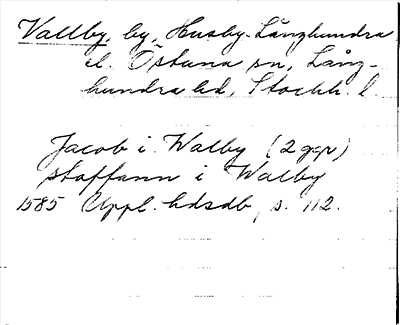 Vallby, by, Husby-Långhundra
el. Östuna sn, Lång-
hundra hd, Stockh. l.
Jacob i Walby (2 ggr)
Staffann i Walby
1585 Uppl. hdsdb, s. 112.